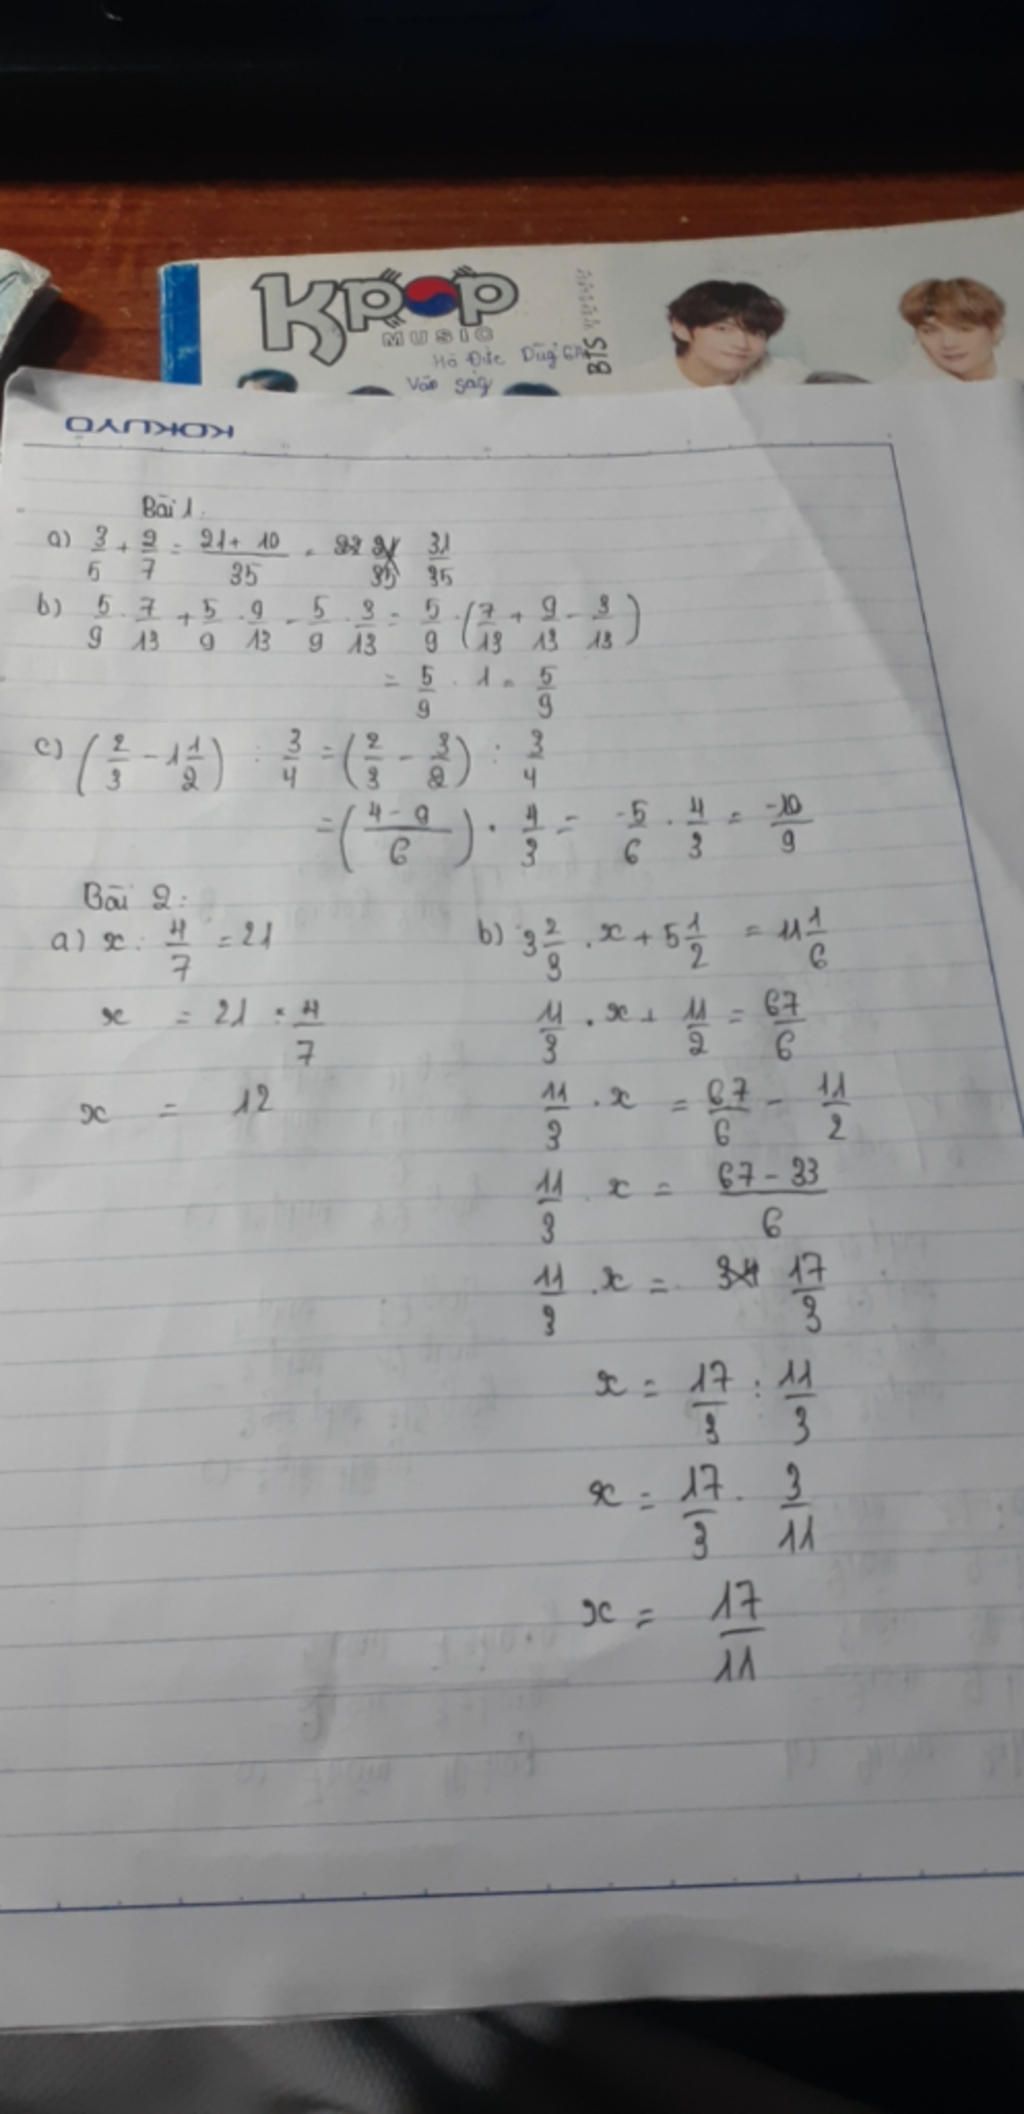 KPOP
MUSIC
BTS
Hồ Đức Dũg
Vào ság
KOKUYO
Bài 1.
a) 3/5 + 2/7 = (21 + 10)/35 = 31/35
b) 5/9 . 7/13 + 5/9 . 9/13 - 5/9 . 3/13 = 5/9 . (7/13 + 9/13 - 3/13)
= 5/9 . 1 = 5/9
c) (2/3 - 1 1/2) : 3/4 = (2/3 - 3/2) : 3/4
= ((4 - 9)/6) . 4/3 = -5/6 . 4/3 = -10/9
Bài 2:
a) x : 4/7 = 21
x = 21 . 4/7
x = 12
b) 3 2/3 . x + 5 1/2 = 11 1/6
11/3 . x + 11/2 = 67/6
11/3 . x = 67/6 - 11/2
11/3 . x = (67 - 33)/6
11/3 . x = 17/3
x = 17/3 : 11/3
x = 17/3 . 3/11
x = 17/11